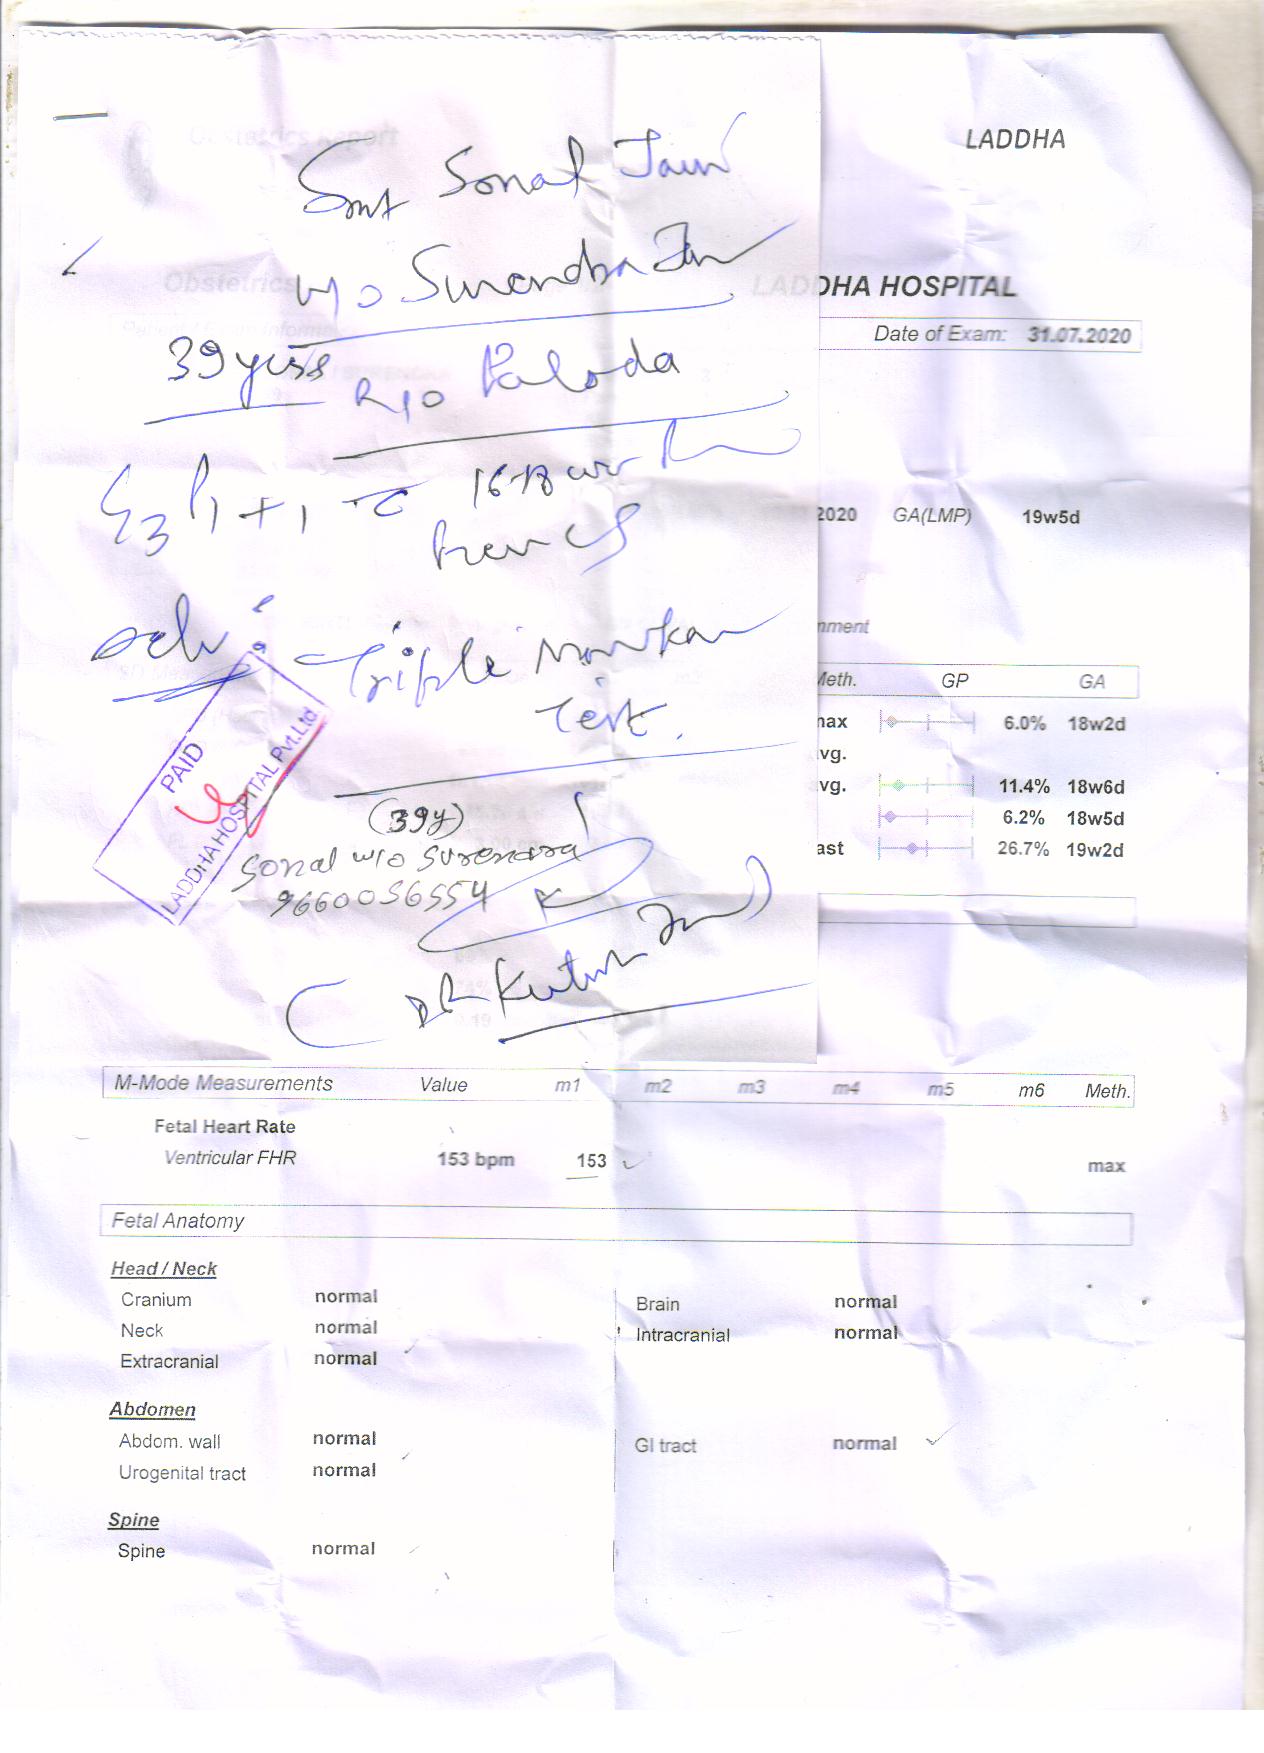 Obstetrics Report
LADDHA
Smt Sonal Jain
w/o Surendra Jain
Obstetrics
LADDHA HOSPITAL
Date of Exam: 31.07.2020
39 yrs R/o Paloda
G3 P1+1 c 16-18 wk
2020 GA(LMP) 19w5d
Adv: Triple Markar
Test.
nment
Meth. GP GA
max 6.0% 18w2d
avg.
avg. 11.4% 18w6d
6.2% 18w5d
ast 26.7% 19w2d
PAID
LADDHA HOSPITAL Pvt.Ltd
(39y)
Sonal w/o Surendra
9660056554
DR
M-Mode Measurements Value m1 m2 m3 m4 m5 m6 Meth.
Fetal Heart Rate
Ventricular FHR 153 bpm 153 max
Fetal Anatomy
Head / Neck
Cranium normal Brain normal
Neck normal Intracranial normal
Extracranial normal
Abdomen
Abdom. wall normal GI tract normal
Urogenital tract normal
Spine
Spine normal